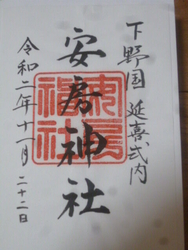 下野国 延喜式内
安房神社
令和二年十一月二十二日